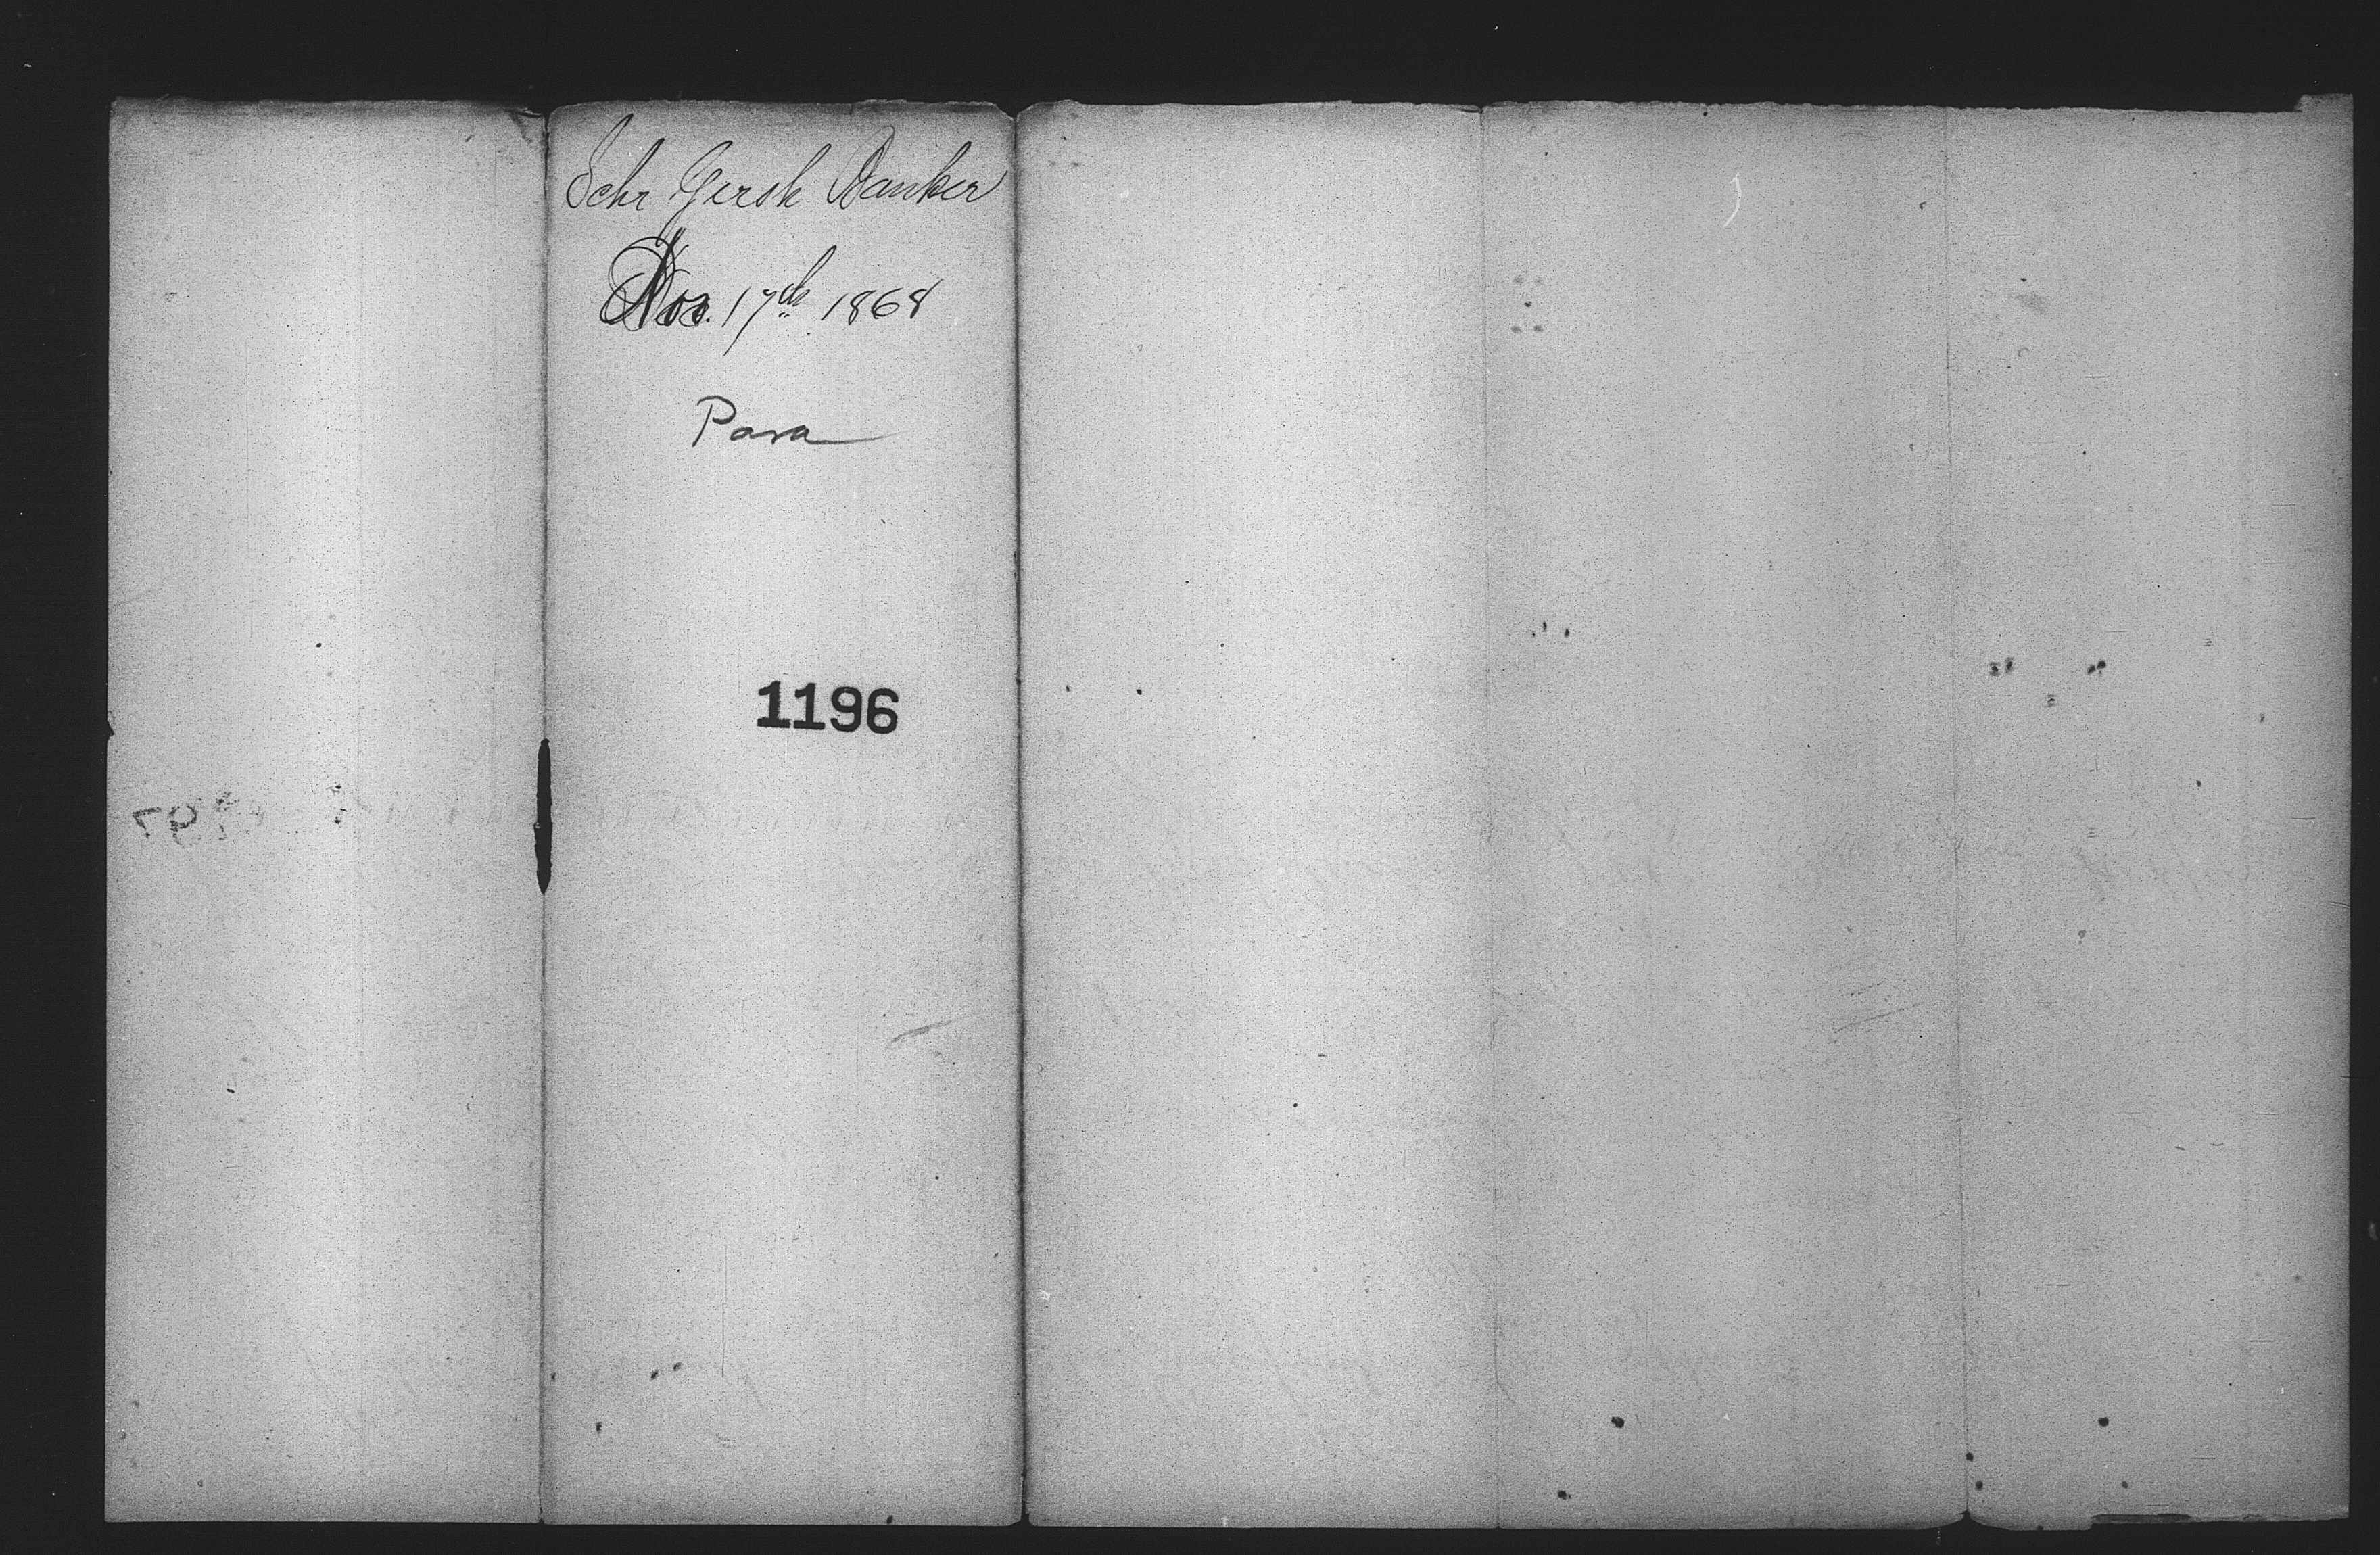 Schr Gersh Banker
Nov. 17th 1868
Para
1196